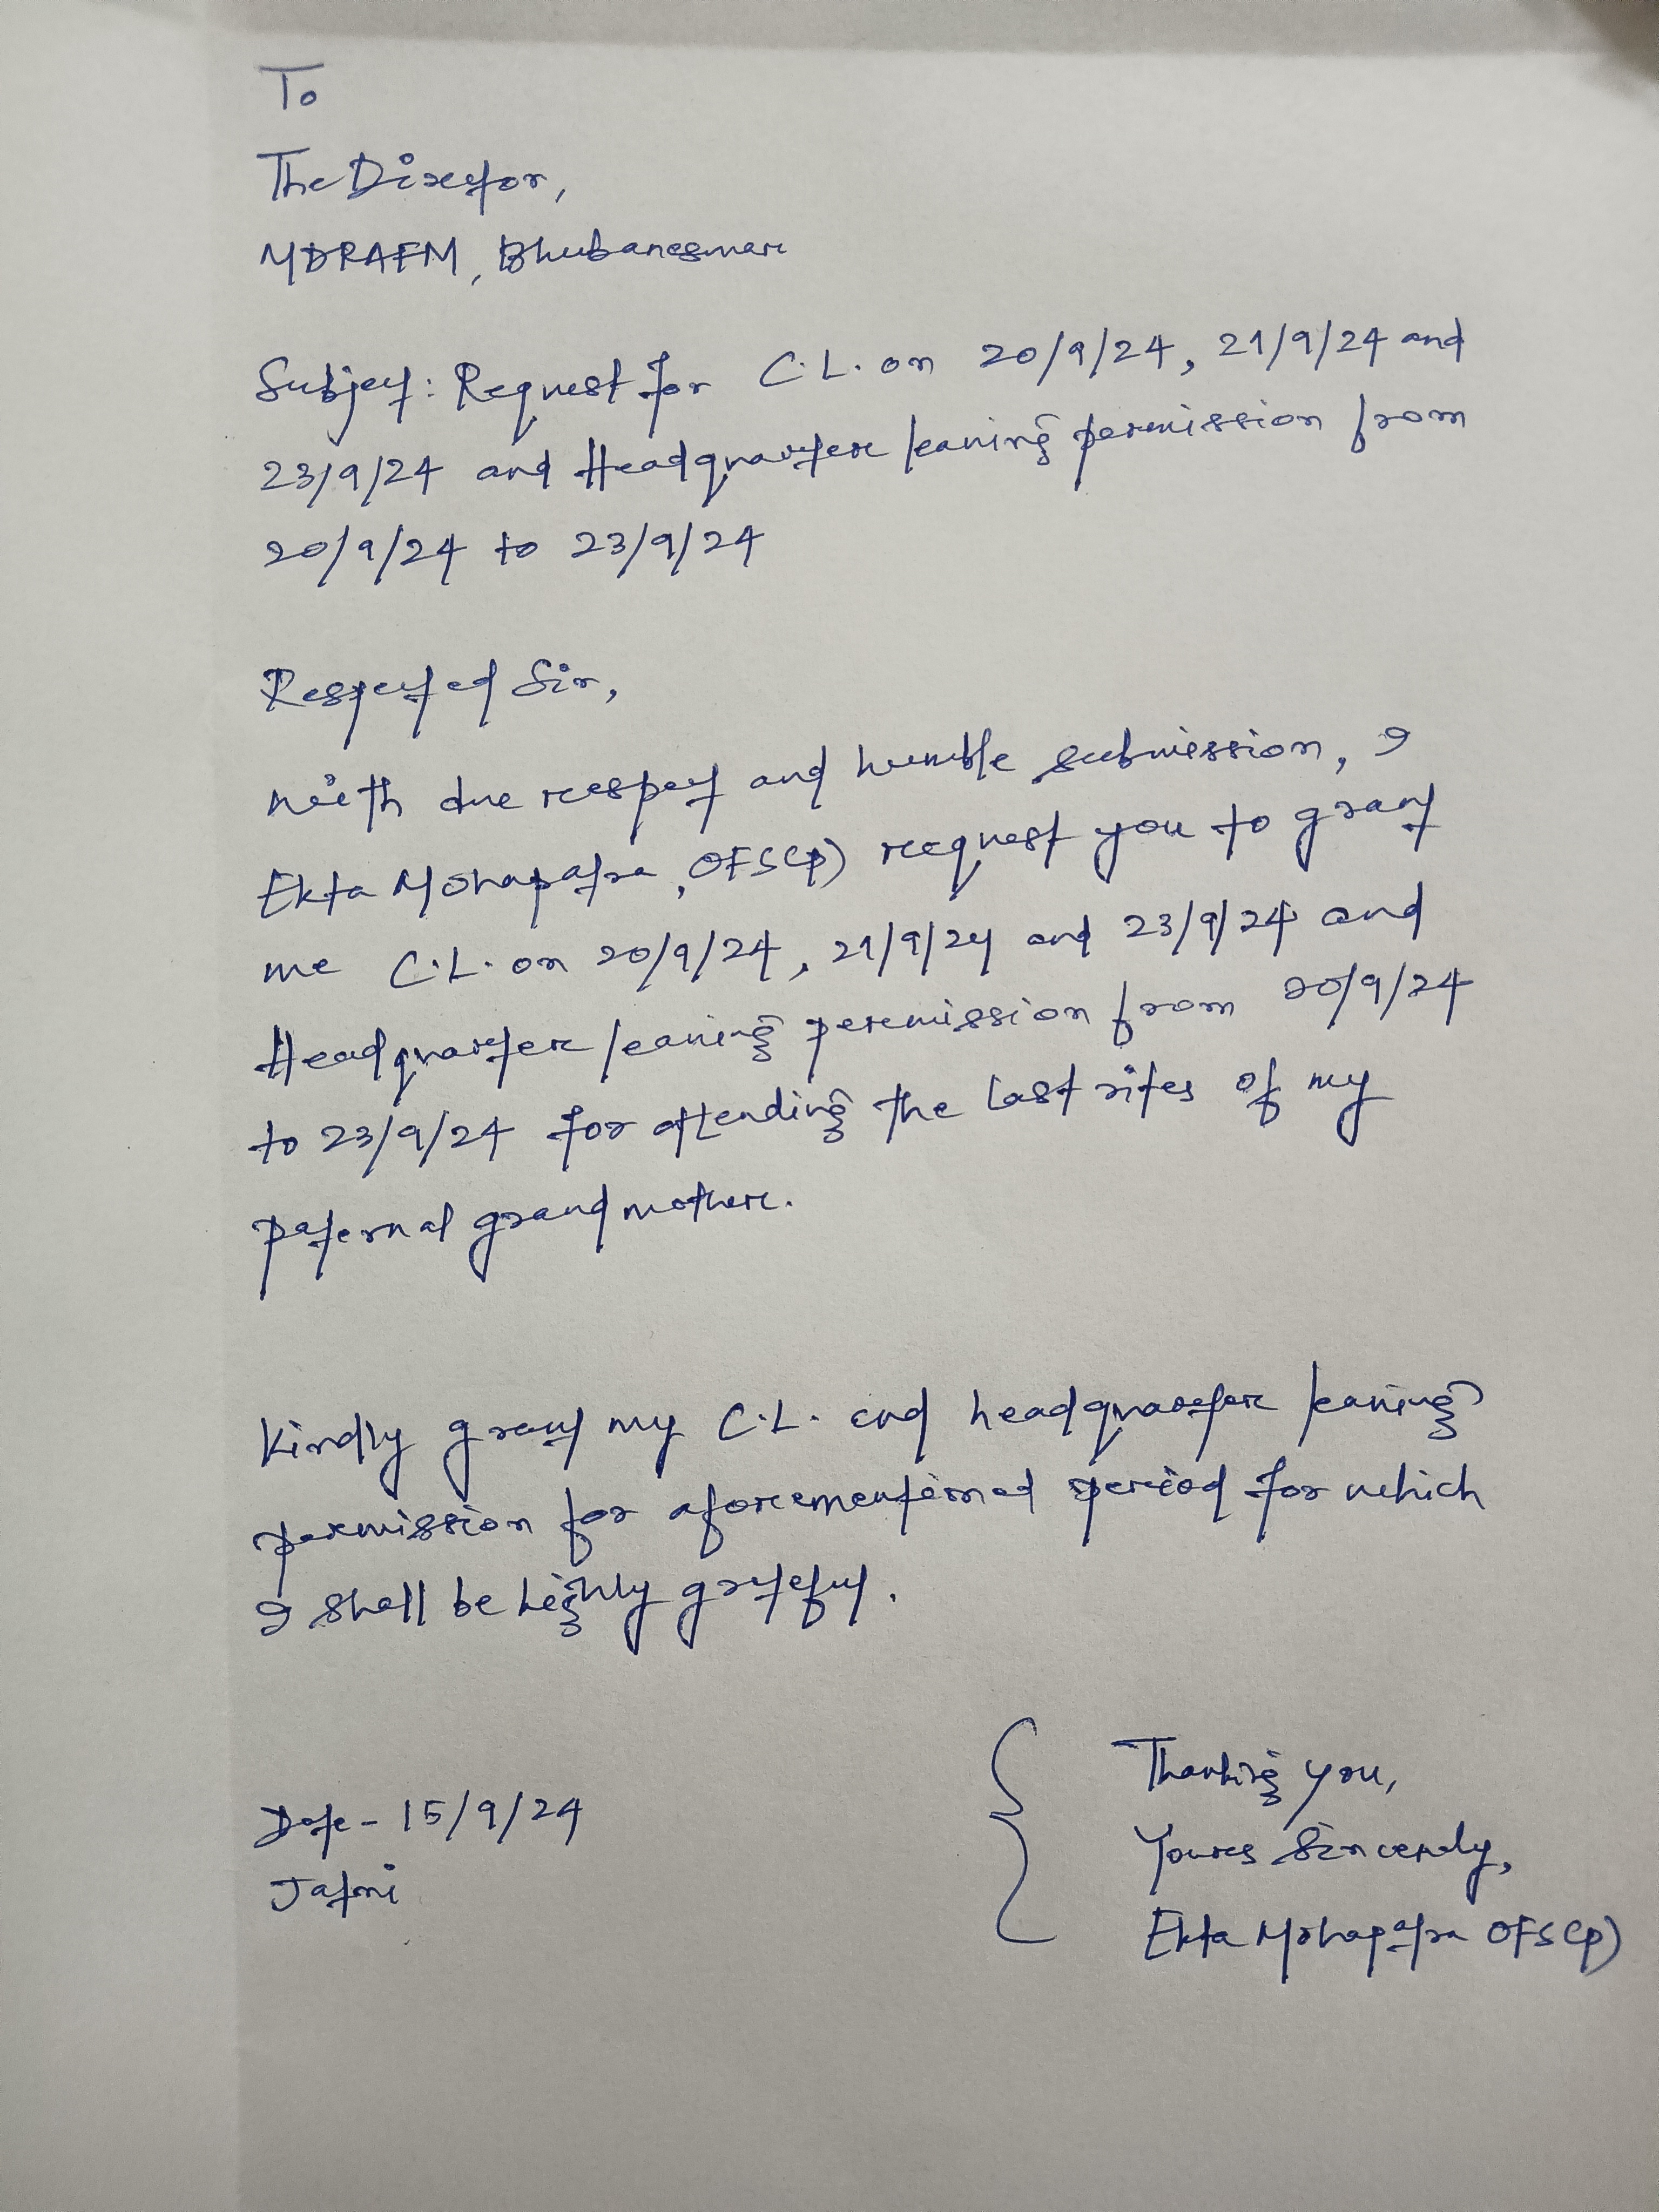 To
The Director,
MDRAFM, Bhubaneswar
Subject: Request for C.L. on 20/9/24, 21/9/24 and
23/9/24 and Headquarter leaving permission from
20/9/24 to 23/9/24
Respected Sir,
With due respect and humble submission, I
Ekta Mohapatra, OFS(P) request you to grant
me C.L. on 20/9/24, 21/9/24 and 23/9/24 and
Headquarter leaving permission from 20/9/24
to 23/9/24 for attending the last rites of my
paternal grandmother.
Kindly grant my C.L. and headquarter leaving
permission for aforementioned period for which
I shall be highly grateful.
Date - 15/9/24
Jatni
Thanking you,
Yours Sincerely,
Ekta Mohapatra OFS(P)